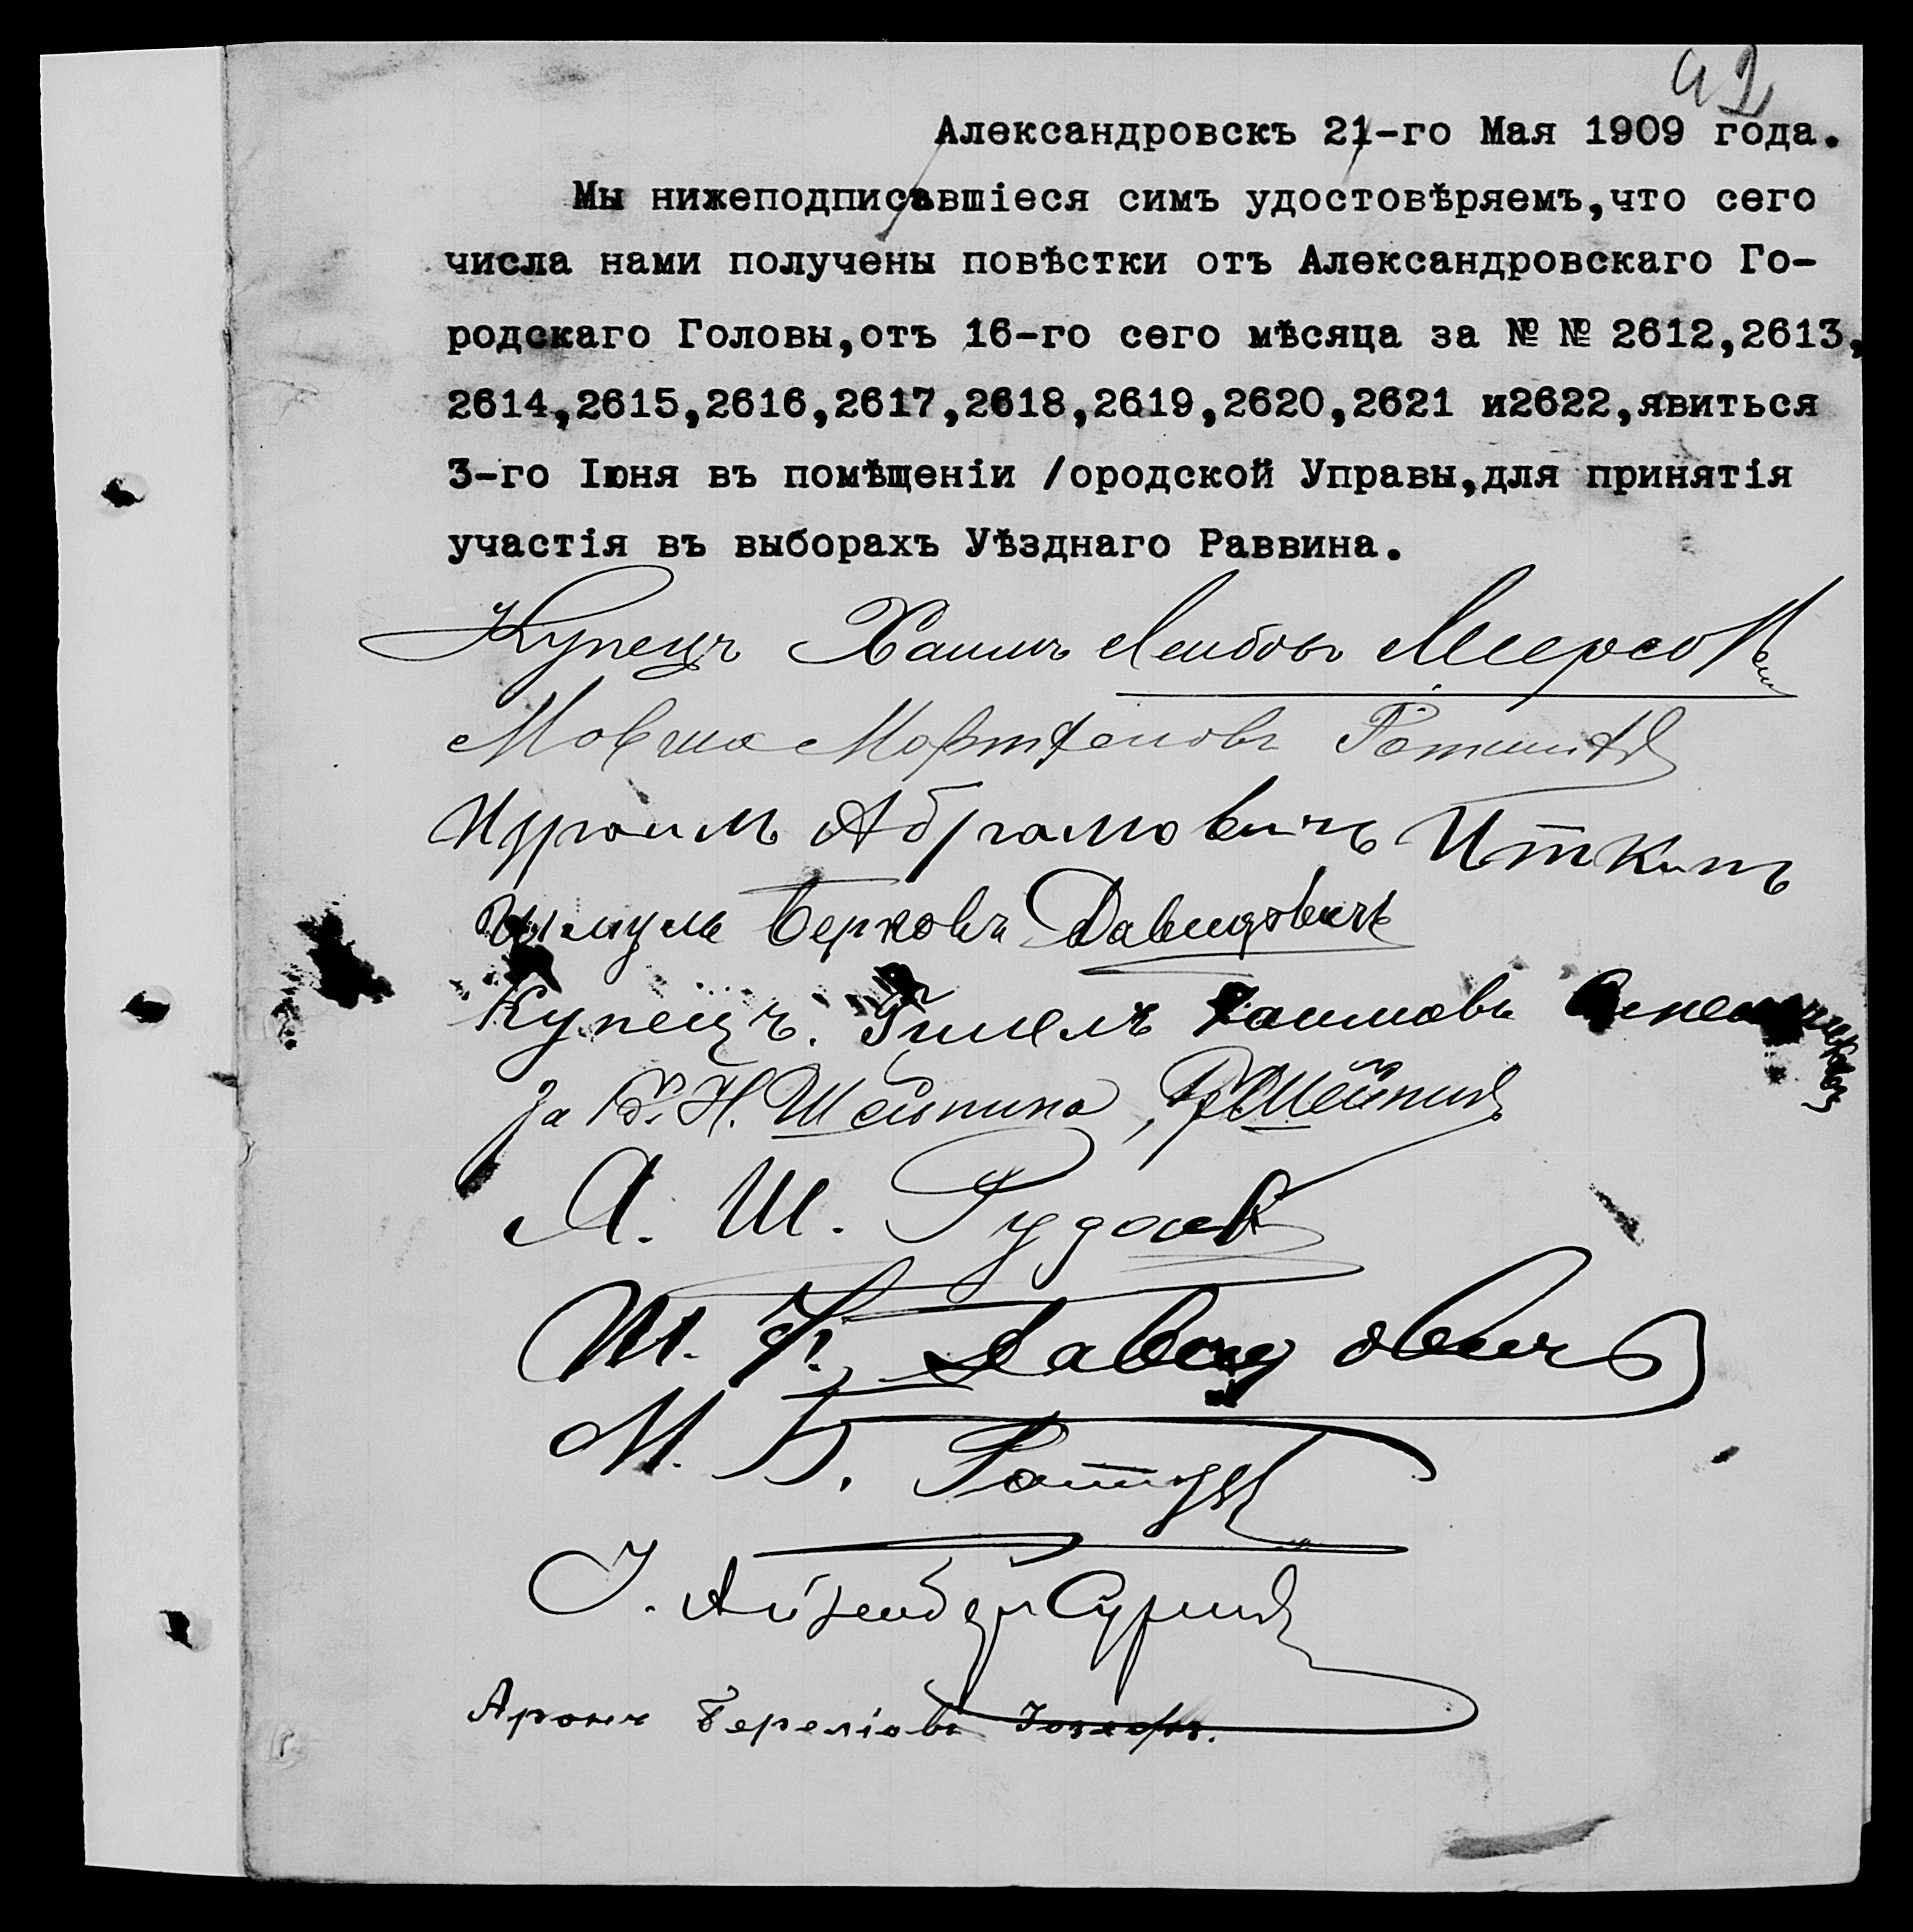 42
Александровскъ 21-го Мая 1909 года.
Мы нижеподписавшіеся симъ удостовѣряемъ,что сего
числа нами получены повѣстки отъ Александровскаго Го-
родскаго Головы,отъ 16-го сего мѣсяца за № № 2612,2613,
2614,2615,2616,2617,2618,2619,2620,2621 и2622,явиться
3-го Іюня въ помѣщеніи /ородской Управы,для принятія
участія въ выборахъ Уѣзднаго Раввина.
Купецъ Хаимъ Лейбовъ
Мовша
Абрамовичъ Иткинъ
Берковъ Давидовичъ
Купецъ. Хаимовъ
За Б. Н. Шейнина, Шейнинъ
А. Ш.
Ш. Давидовичъ
М. Б.
І. Суринъ
Аронъ Іозефъ.